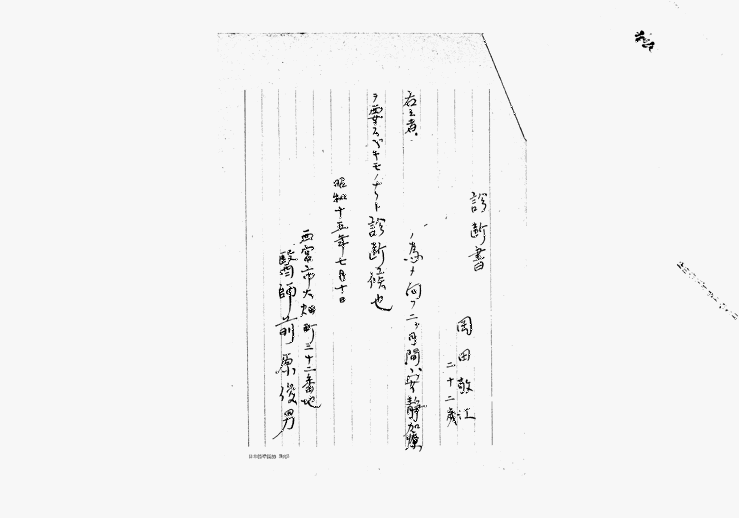 診断書
岡田敏江
二十二歳
右之者
ノ為メ向フ二ヶ月間ハ安静加療
ヲ要スベキモノナリト診断候也
昭和十五年七月十日
西宮市大畑町三十二番地
醫師前原俊男